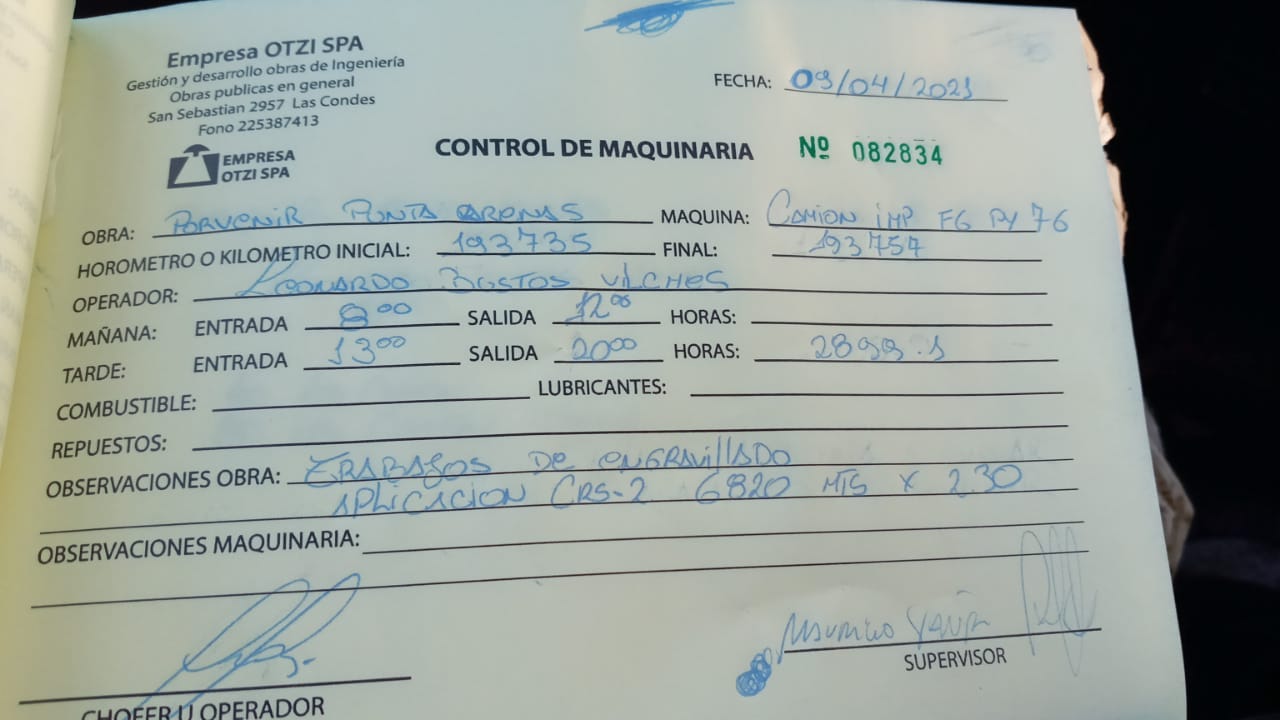 Empresa OTZI SPA
Gestión y desarrollo obras de Ingeniería
Obras publicas en general
San Sebastian 2957 Las Condes
Fono 225387413
EMPRESA
OTZI SPA
FECHA: 09/04/2021
CONTROL DE MAQUINARIA Nº 082834
OBRA: PORVENIR PUNTA ARENAS MAQUINA: CAMION IMP FG PY 76
HOROMETRO O KILOMETRO INICIAL: 193735 FINAL: 193757
OPERADOR: LEONARDO BUSTOS VILCHES
MAÑANA: ENTRADA 8:00 SALIDA 12:00 HORAS:
TARDE: ENTRADA 13:00 SALIDA 20:00 HORAS: 2899.1
COMBUSTIBLE: LUBRICANTES:
REPUESTOS:
OBSERVACIONES OBRA: TRABAJOS DE ENGRAVILLADO
APLICACION CRS-2 6820 MTS X 2.30
OBSERVACIONES MAQUINARIA:
MAURICIO
CHOFER U OPERADOR
SUPERVISOR